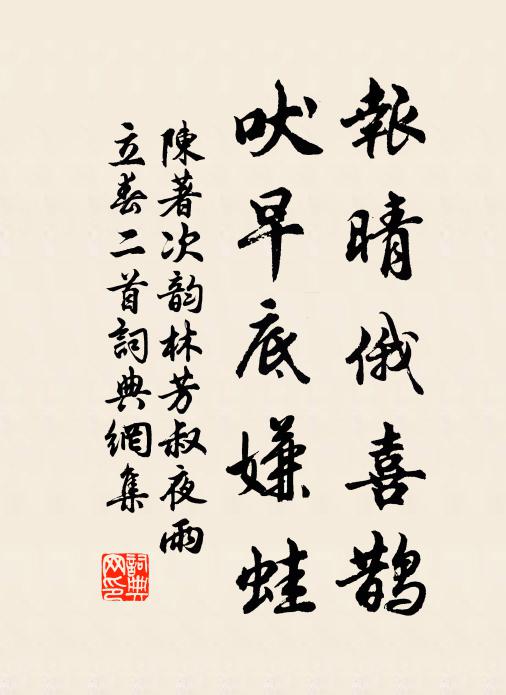 報晴俄喜鵲
吠早底嫌蛙
陳著次韵林芳叔夜雨
立春二首詞典網集
詞典網印